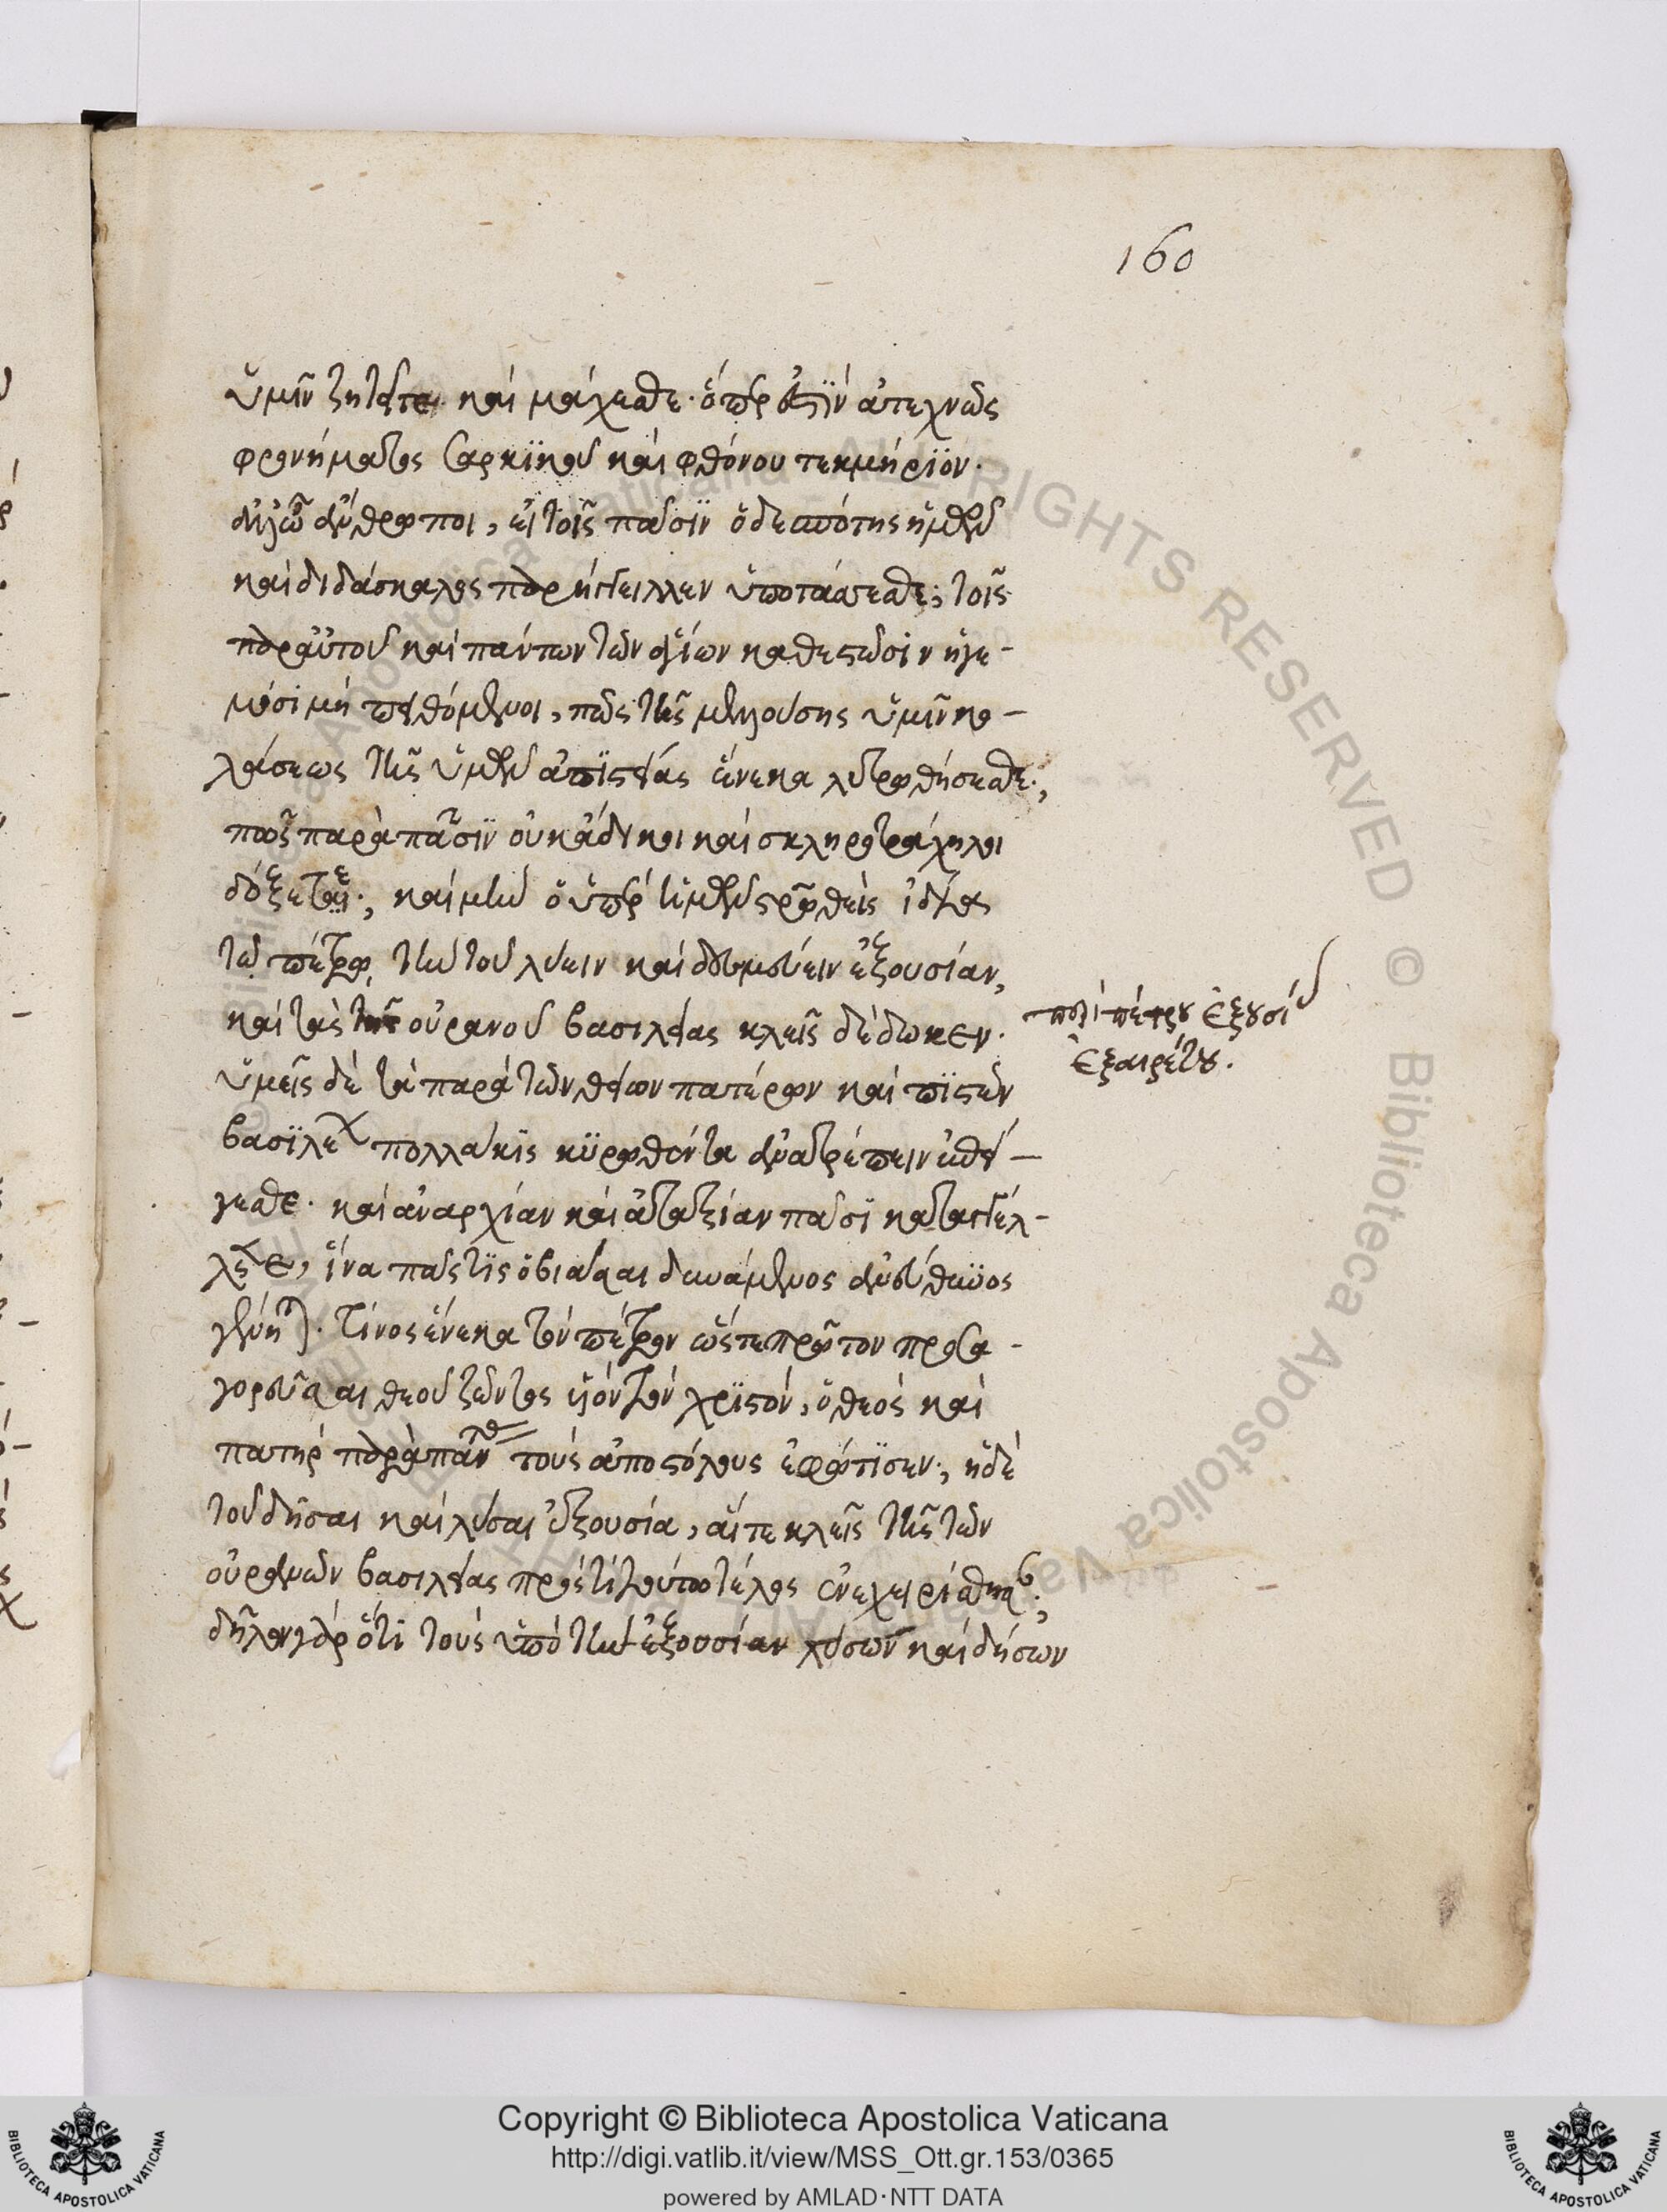 160
ὑμῖν ζητεῖτε καὶ μάχεσθε· ὅπερ ἐστὶν ἀτεχνῶς
φρονήματος σαρκικοῦ καὶ φθόνου τεκμήριον·
ἄνθρωποι, εἰ τοῖς πᾶσιν ὁ δεσπότης ἡμῶν
καὶ διδάσκαλος παρήγγειλλεν ὑποτάσσεσθε, τοῖς
παρ' αὐτοῦ καὶ πάντων τῶν ἁγίων καθεστῶσιν ἡγε-
μόσι μὴ πειθόμενοι, πῶς τῆς μενούσης ὑμῖν κο-
λάσεως τῆς ὑμῶν ἀπιστείας ἕνεκα λυτρωθήσεσθε·,
πῶς παρὰ πᾶσιν οὐκ ἄδικοι καὶ σκληροτράχηλοι
δόξετε·, καὶ μὴν ὁ ὑπὲρ ἡμῶν σταυρωθεὶς ἰδίως
τῷ πέτρῳ, τὴν τοῦ λύειν καὶ δεσμεύειν ἐξουσίαν,
καὶ τὰς τῆς οὐρανοῦ βασιλείας κλεῖς δέδωκεν·
ὑμεῖς δὲ τὰ παρὰ τῶν θείων πατέρων καὶ πιστῶν
βασιλέων πολλάκις κυρωθέντα ἀνατρέπειν
καὶ ἀναρχίαν καὶ ἀταξίαν πᾶσι καταγγέλ-
λετε, ἵνα πᾶς τις ὁ βιάσασθαι δυνάμενος ἀνεύθυνος
γένηται. τίνος ἕνεκα τὸν πέτρον ὥστε πρῶτον προσα-
γορεῦσαι θεοῦ ζῶντος υἱὸν τὸν χριστόν, ὁ θεὸς καὶ
πατὴρ παρὰ πάντας τοὺς ἀποστόλους ἐφώτισεν·, ἡ δὲ
τοῦ δῆσαι καὶ λῦσαι ἐξουσία, αἵ τε κλεῖς τῆς τῶν
οὐρανῶν βασιλείας πρὸς τί τούτῳ τέλος ἐνεχειρίσθησαν·,
δῆλον γὰρ ὅτι τοὺς ὑπὸ τὴν ἐξουσίαν λύσων καὶ δήσων
περὶ πέτρου ἐξουσίας
ἐξαιρέτου.
Copyright © Biblioteca Apostolica Vaticana
http://digi.vatlib.it/view/MSS_Ott.gr.153/0365
powered by AMLAD·NTT DATA
BIBLIOTECA APOSTOLICA VATICANA
BIBLIOTECA APOSTOLICA VATICANA